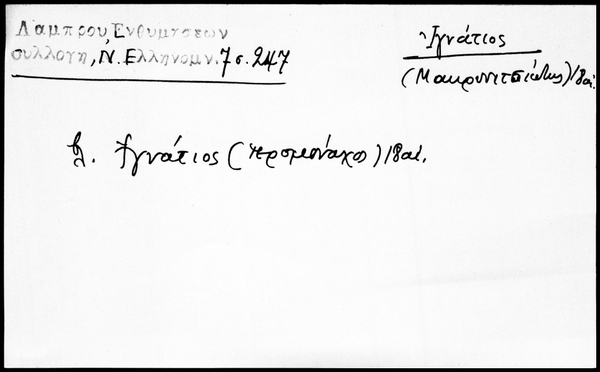 Λάμπρου, Ἐνθυμήσεων
συλλογή, Ν. Ἑλληνομν. 7 σ. 247
Ἰγνάτιος
(Μακρυνιτσιώτης) 18 αἰ.
βλ. Ἰγνάτιος (ἱερομόναχος) 18 αἰ.